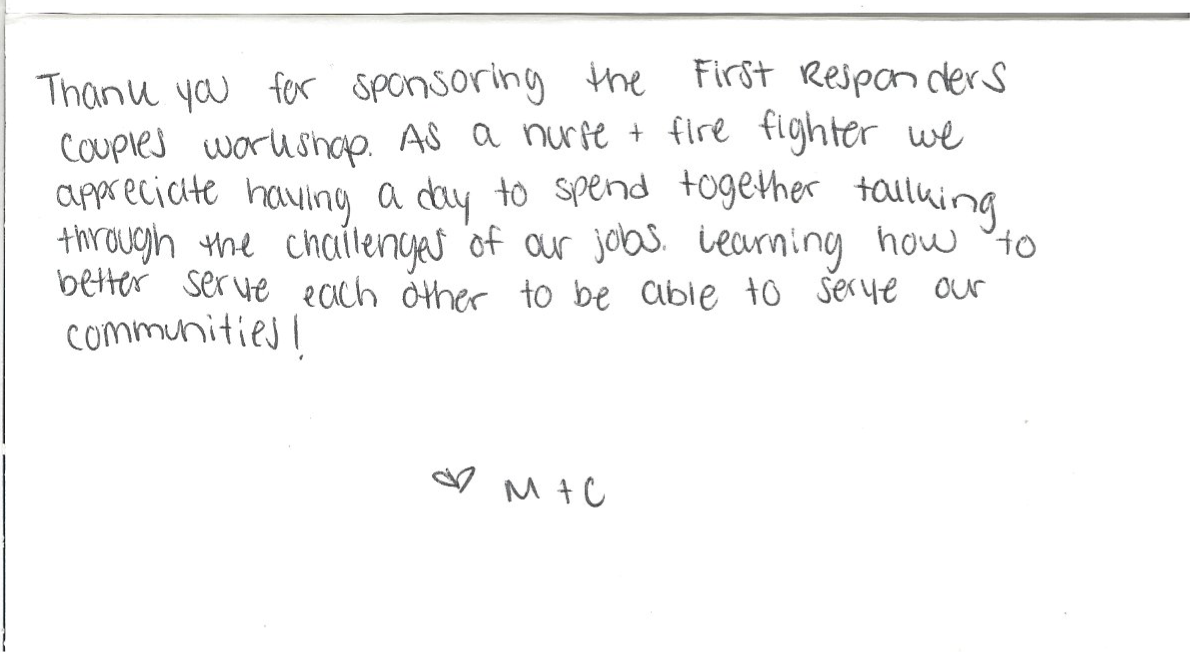 Thank you for sponsoring the First Responders
couples workshop. As a nurse + fire fighter we
appreciate having a day to spend together talking
through the challenges of our jobs. Learning how to
better serve each other to be able to serve our
communities!
♡ M + C